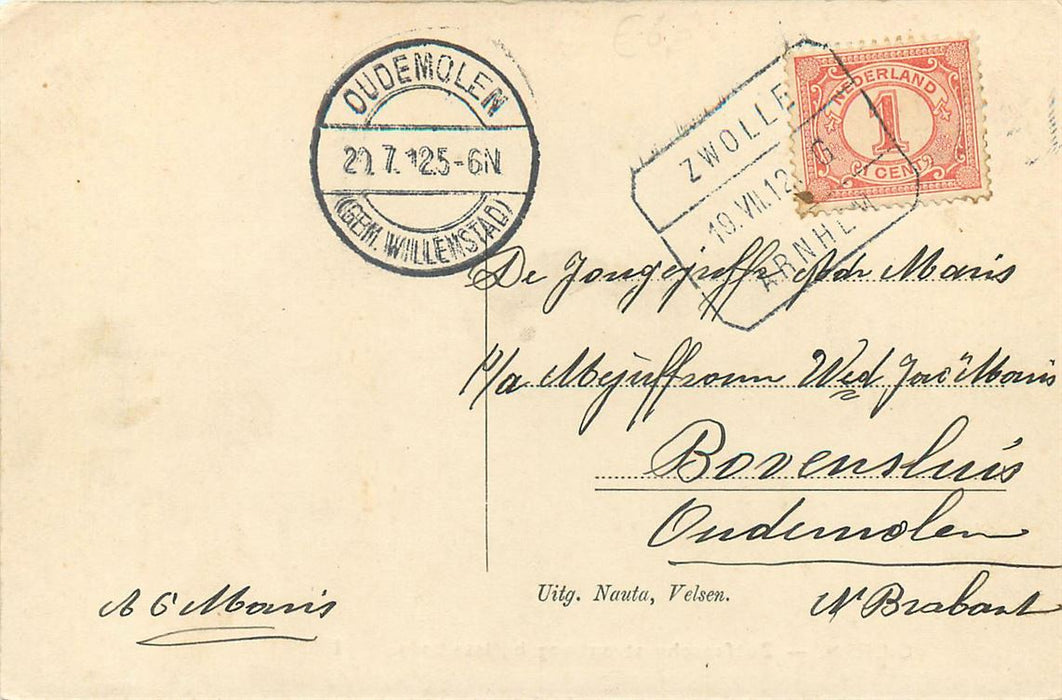 OUDEMOLEN
20.7.12 5-6N
(GEM. WILLEMSTAD)
ZWOLLE
19.VII.12. G
ARNHEM
NEDERLAND
1
CENT
De Jongejuffr Adr Maris
p/a Mejuffrouw Wed Jac Maris
Bovensluis
Oudemolen
N Brabant
A C Maris
Uitg. Nauta, Velsen.